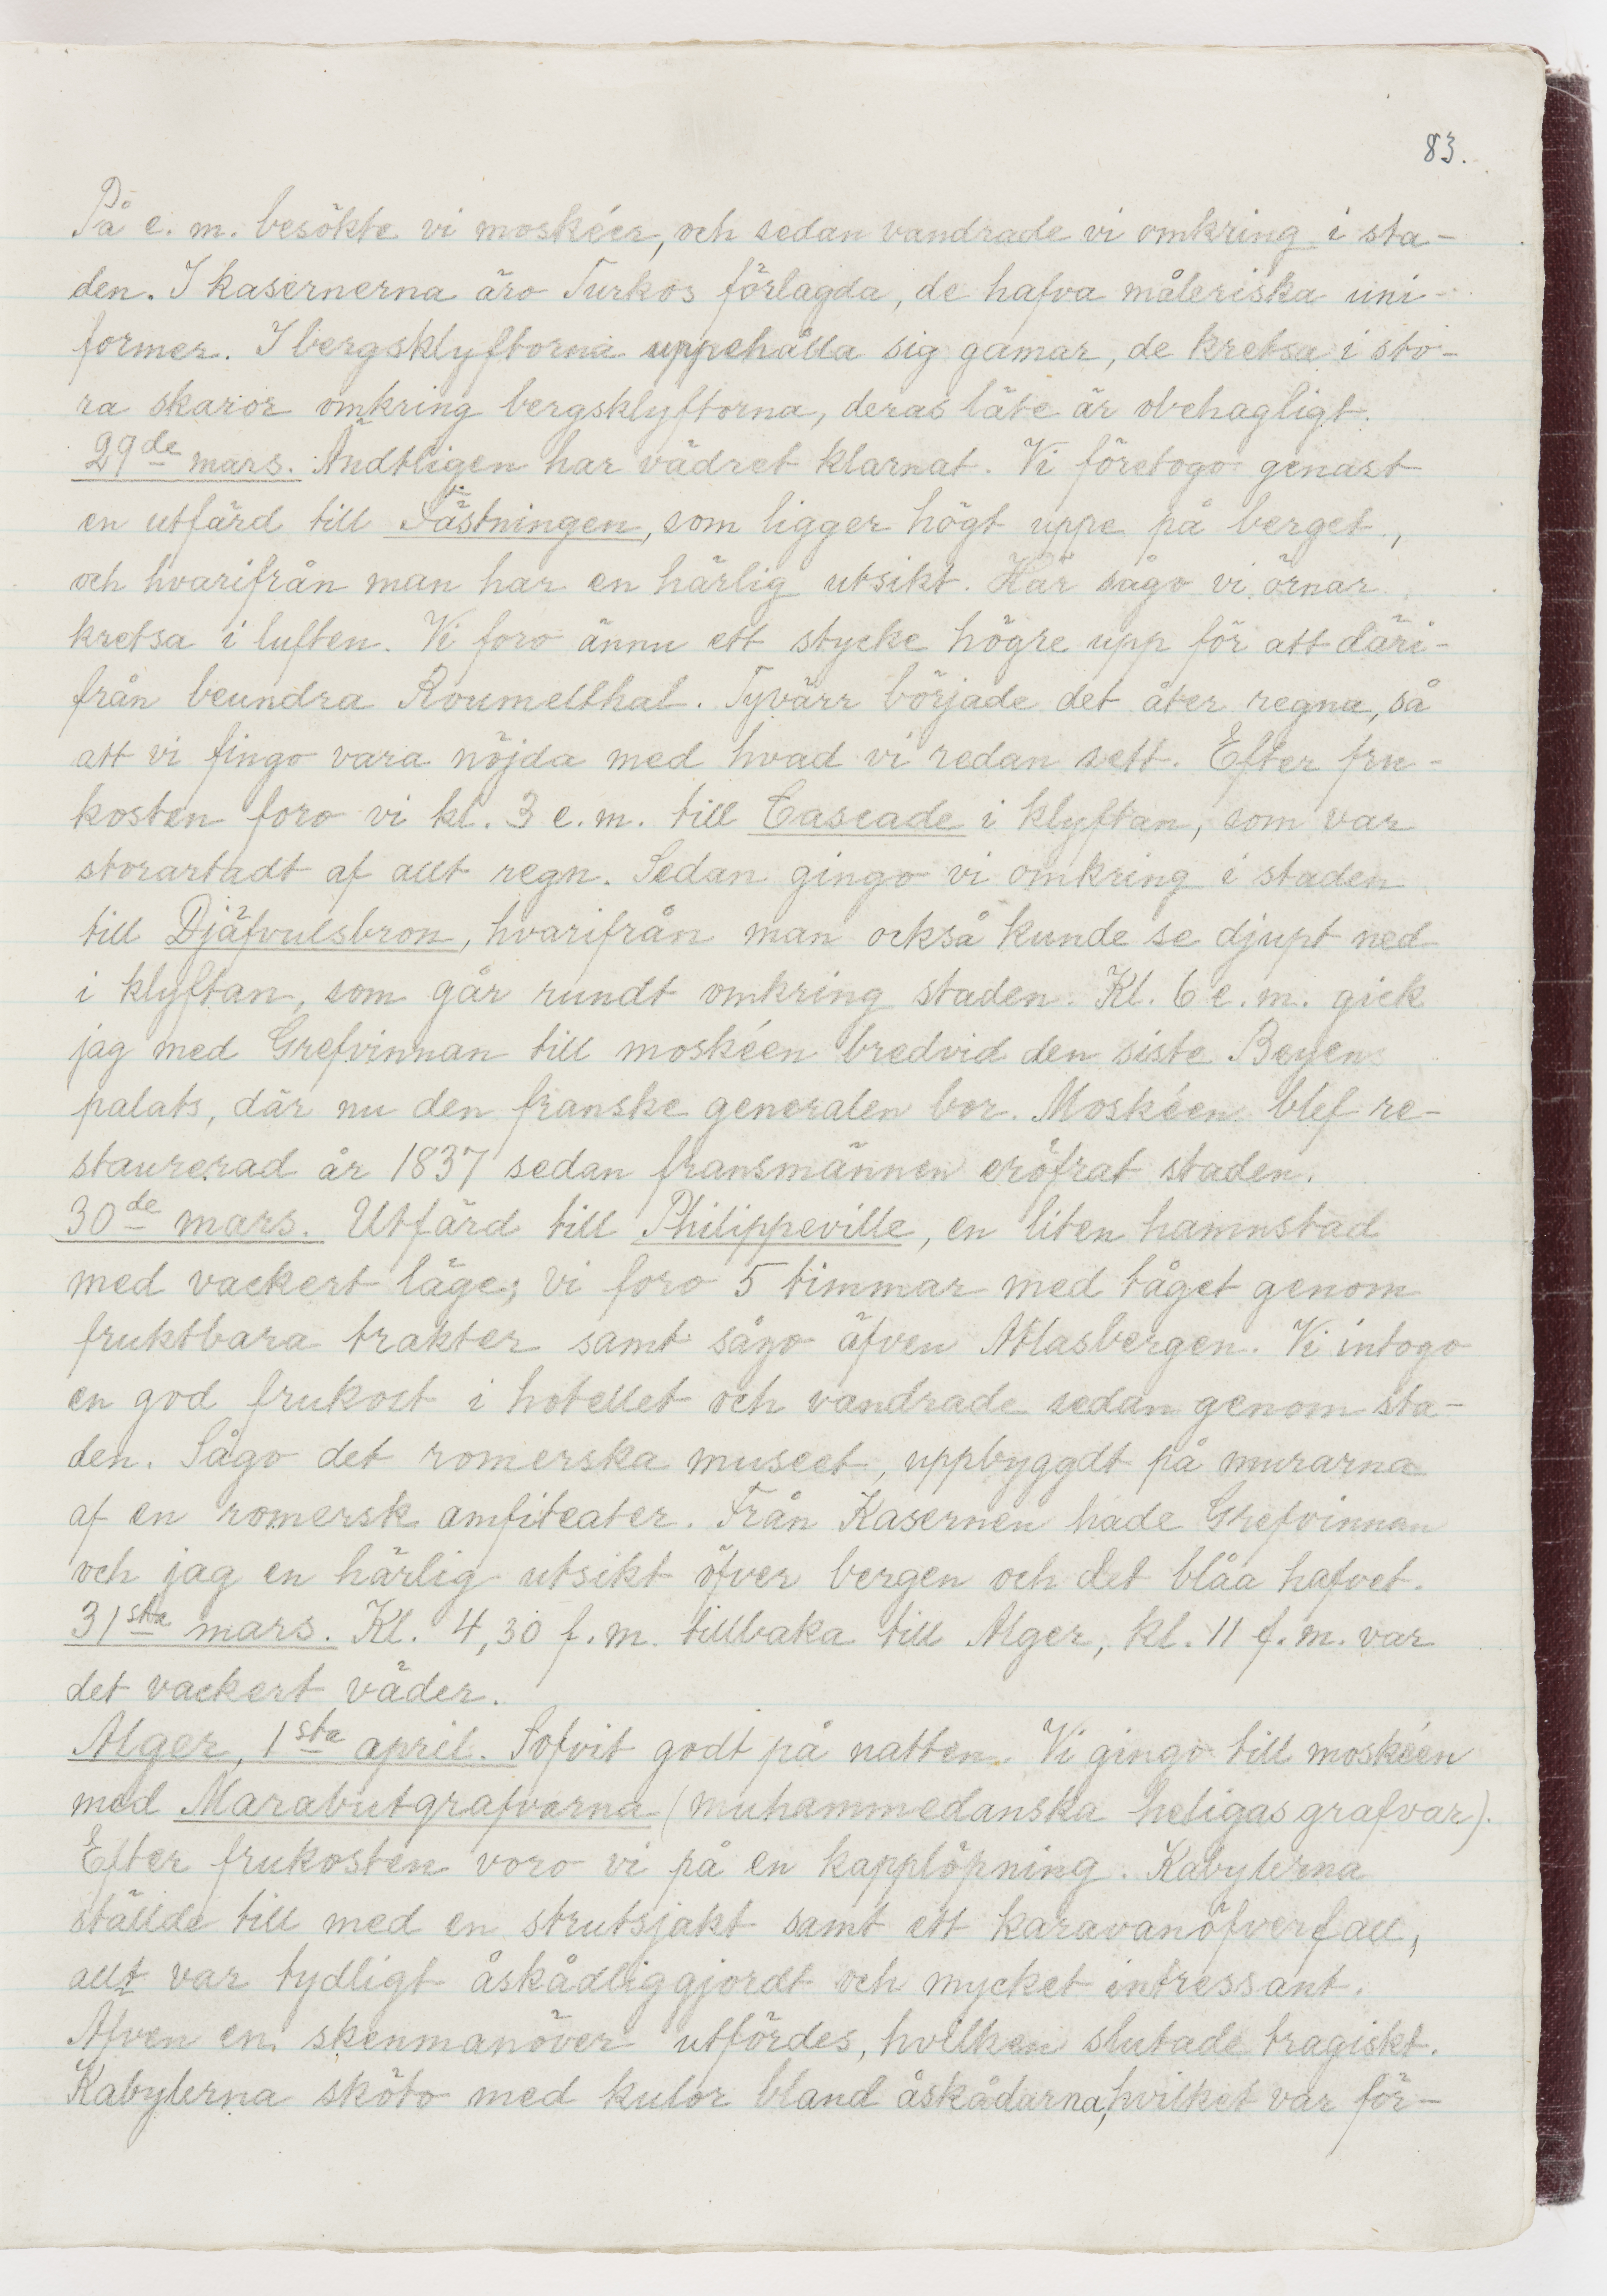 83.
På e. m. besökte vi moskéer, och sedan vandrade vi omkring i sta-
den. I kasernerna äro Turkos förlagda, de hafva måleriska uni-
former. I bergsklyftorna uppehålla sig gamar, de kretsa i sto-
ra skaror omkring bergsklyftorna, deras läte är obehagligt.
29de mars. Ändtligen har vädret klarnat. Vi företogo genast
en utfärd till Fästningen, som ligger högt uppe på berget,
och hvarifrån man har en härlig utsikt. Här sågo vi örnar
kretsa i luften. Vi foro ännu ett stycke högre upp för att däri-
från beundra Roumelthal. Tyvärr började det åter regna, så
att vi fingo vara nöjda med hvad vi redan sett. Efter fru-
kosten foro vi kl. 3 e. m. till Cascade i klyftan, som var
storartadt af allt regn. Sedan gingo vi omkring i staden
till Djäfvulsbron, hvarifrån man också kunde se djupt ned
i klyftan, som går rundt omkring staden. Kl. 6 e. m. gick
jag med Grefvinnan till moskéen bredvid den siste Beyens
palats, där nu den franske generalen bor. Moskéen blef re-
staurerad år 1837 sedan fransmännen eröfrat staden.
30de mars. Utfärd till Philippeville, en liten hamnstad
med vackert läge; vi foro 5 timmar med tåget genom
fruktbara trakter samt sågo äfven Atlasbergen. Vi intogo
en god frukost i hotellet och vandrade sedan genom sta-
den. Sågo det romerska museet, uppbyggdt på murarna
af en romersk amfiteater. Från Kasernen hade Grefvinnan
och jag en härlig utsikt öfver bergen och det blåa hafvet.
31sta mars. Kl. 4,30 f. m. tillbaka till Alger, kl. 11 f. m. var
det vackert väder.
Alger, 1sta april. Sofvit godt på natten. Vi gingo till moskéen
med Marabutgrafvarna (muhammedanska heligas grafvar).
Efter frukosten voro vi på en kapplöpning. Kabylerna
ställde till med en strutsjakt samt ett karavanöfverfall,
allt var tydligt åskådliggjordt och mycket intressant.
Äfven en skenmanöver utfördes, hvilken slutade tragiskt.
Kabylerna sköto med kulor bland åskådarna, hvilket var för-